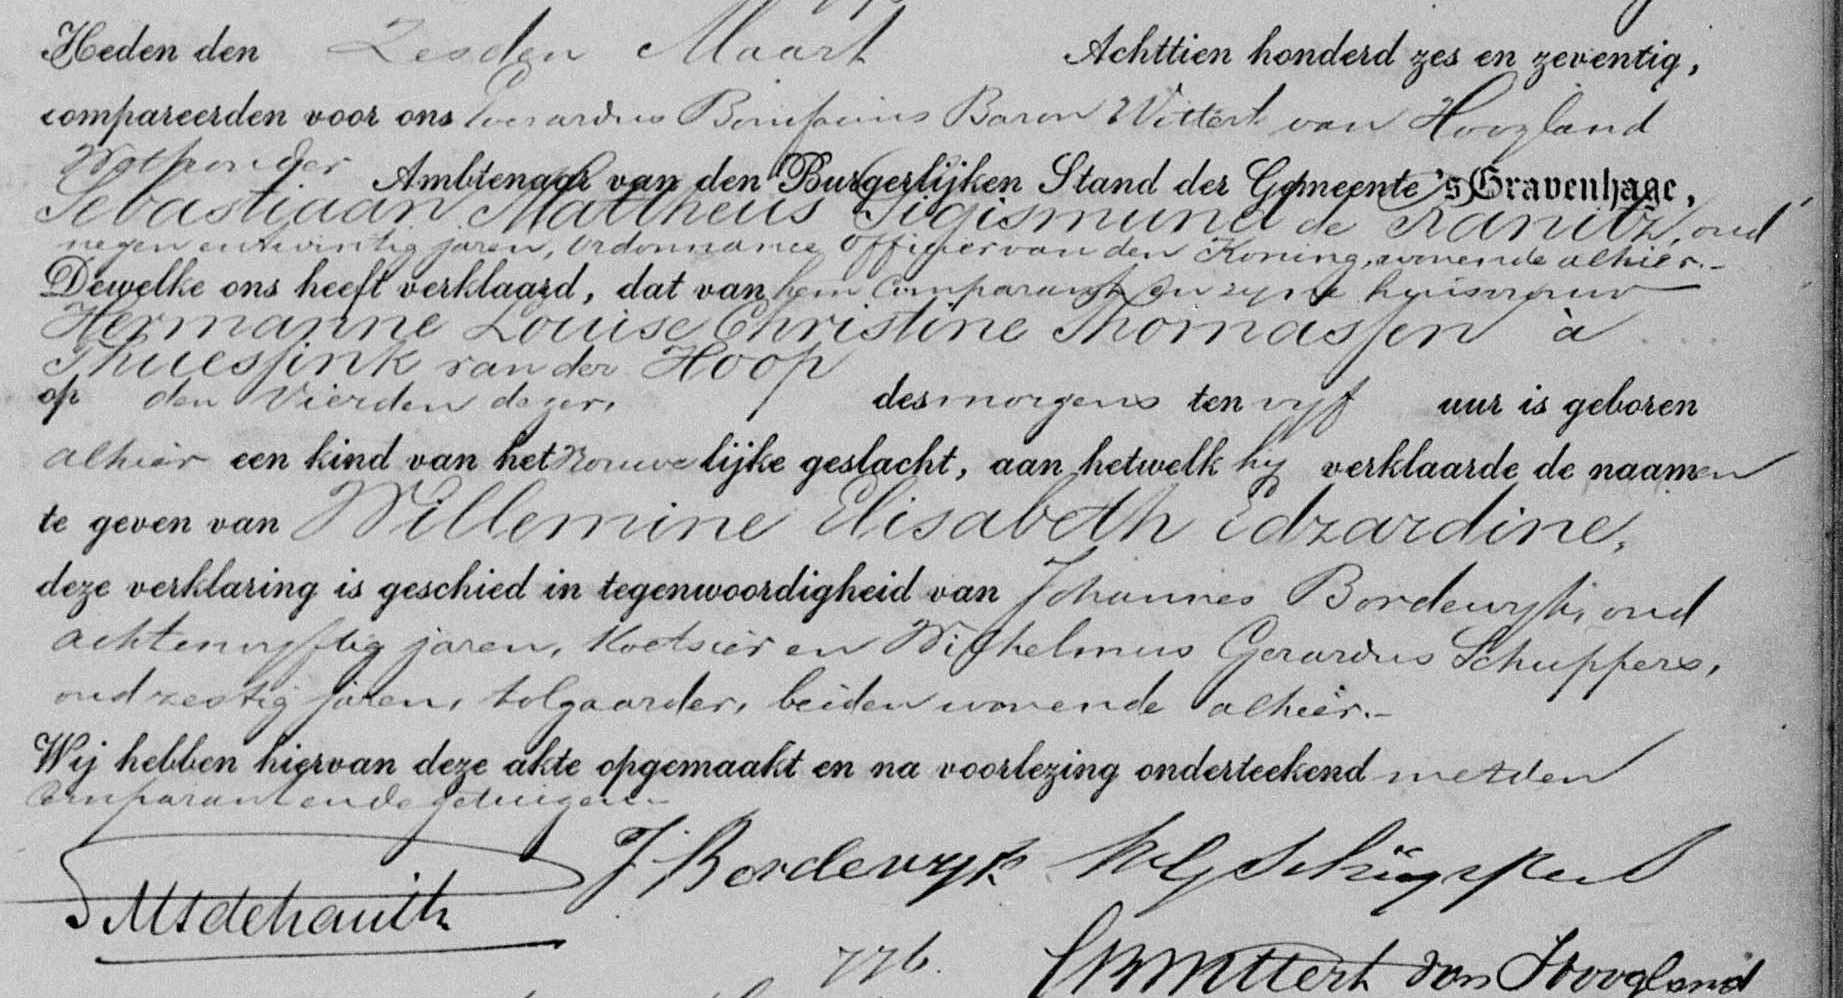 Heden den Zesden Maart Achttien honderd zes en zeventig,
compareerden voor ons Everardus Bonifacius Baron Wittert van Hoogland
Wethouder Ambtenaar van den Burgerlijken Stand der Gemeente 's Gravenhage,
Sebastiaan Mattheus Sigismund de Ranitz, oud
negen en twintig jaren, Ordonnance Officier van den Koning, wonende alhier.-
Dewelke ons heeft verklaard, dat van hem Comparant en zyne huisvrouw
Hermanne Louise Christine Thomassen à
Thuessink van der Hoop
op den Vierden dezer, des morgens ten vyf uur is geboren
alhier een kind van het Vrouwelijke geslacht, aan hetwelk hy verklaarde de naamen
te geven van Willemine Elisabeth Edzardine,
deze verklaring is geschied in tegenwoordigheid van Johannes Bordewyk, oud
achtenvyftig jaren, Koetsier en Wilhelmus Gerardus Schuppers,
oud zestig jaren, tolgaarder, beiden wonende alhier.-
Wij hebben hiervan deze akte opgemaakt en na voorlezing onderteekend met den
Comparant en de getuigen.-
J Bordewyk WG Schuppers
SMS de Ranitz
776.
EB Wittert van Hoogland